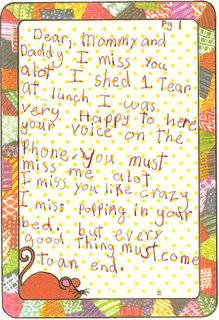 Pg 1
Dear, Mommy and
Daddy I miss you
alot I shed 1 Tear
at lunch I was
very Happy to here
your voice on the
Phone. You must
miss me alot
I miss you like crazy
I miss Popping in your
bed. but every
good thing must come
to an end.